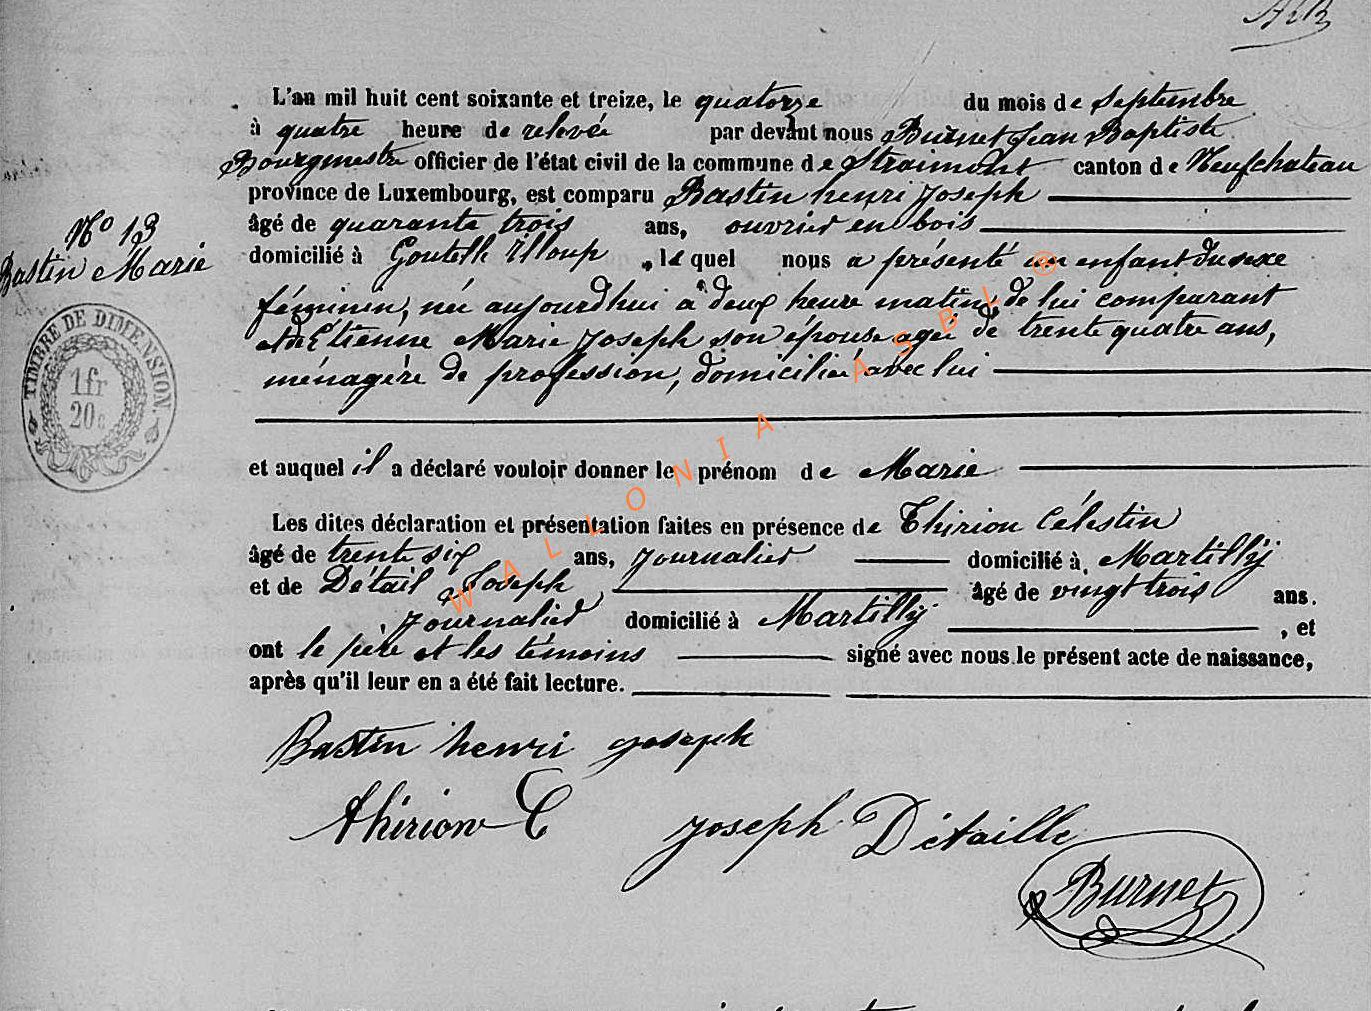 L'an mil huit cent soixante et treize, le quatorze du mois de Septembre
à quatre heure de relevée par devant nous Burnet Jean Baptiste
Bourgmestre officier de l'état civil de la commune de Straimont canton de Neufchateau
province de Luxembourg, est comparu Bastin henri Joseph
N° 13
Bastin Marie
âgé de quarante trois ans, ouvrier en bois
domicilié à , le quel nous a présenté un enfant du sexe
féminin, née aujourdhui à deux heure matin, de lui comparant
et de Etienne Marie Joseph son épouse agée de trente quatre ans,
ménagère de profession, domiciliée avec lui
TIMBRE DE DIMENSION.
1 fr
20 c
et auquel il a déclaré vouloir donner le prénom de Marie
Les dites déclaration et présentation faites en présence de Thirion Célestin
âgé de trente six ans, journalier domicilié à Martilly
et de Détail Joseph âgé de vingt trois ans.
journalier domicilié à Martilly , et
ont le père et les témoins signé avec nous le présent acte de naissance,
après qu'il leur en a été fait lecture.
Bastin henri joseph
thirion C
Joseph Détaille
Burnet
WALLONIA ASBL ®